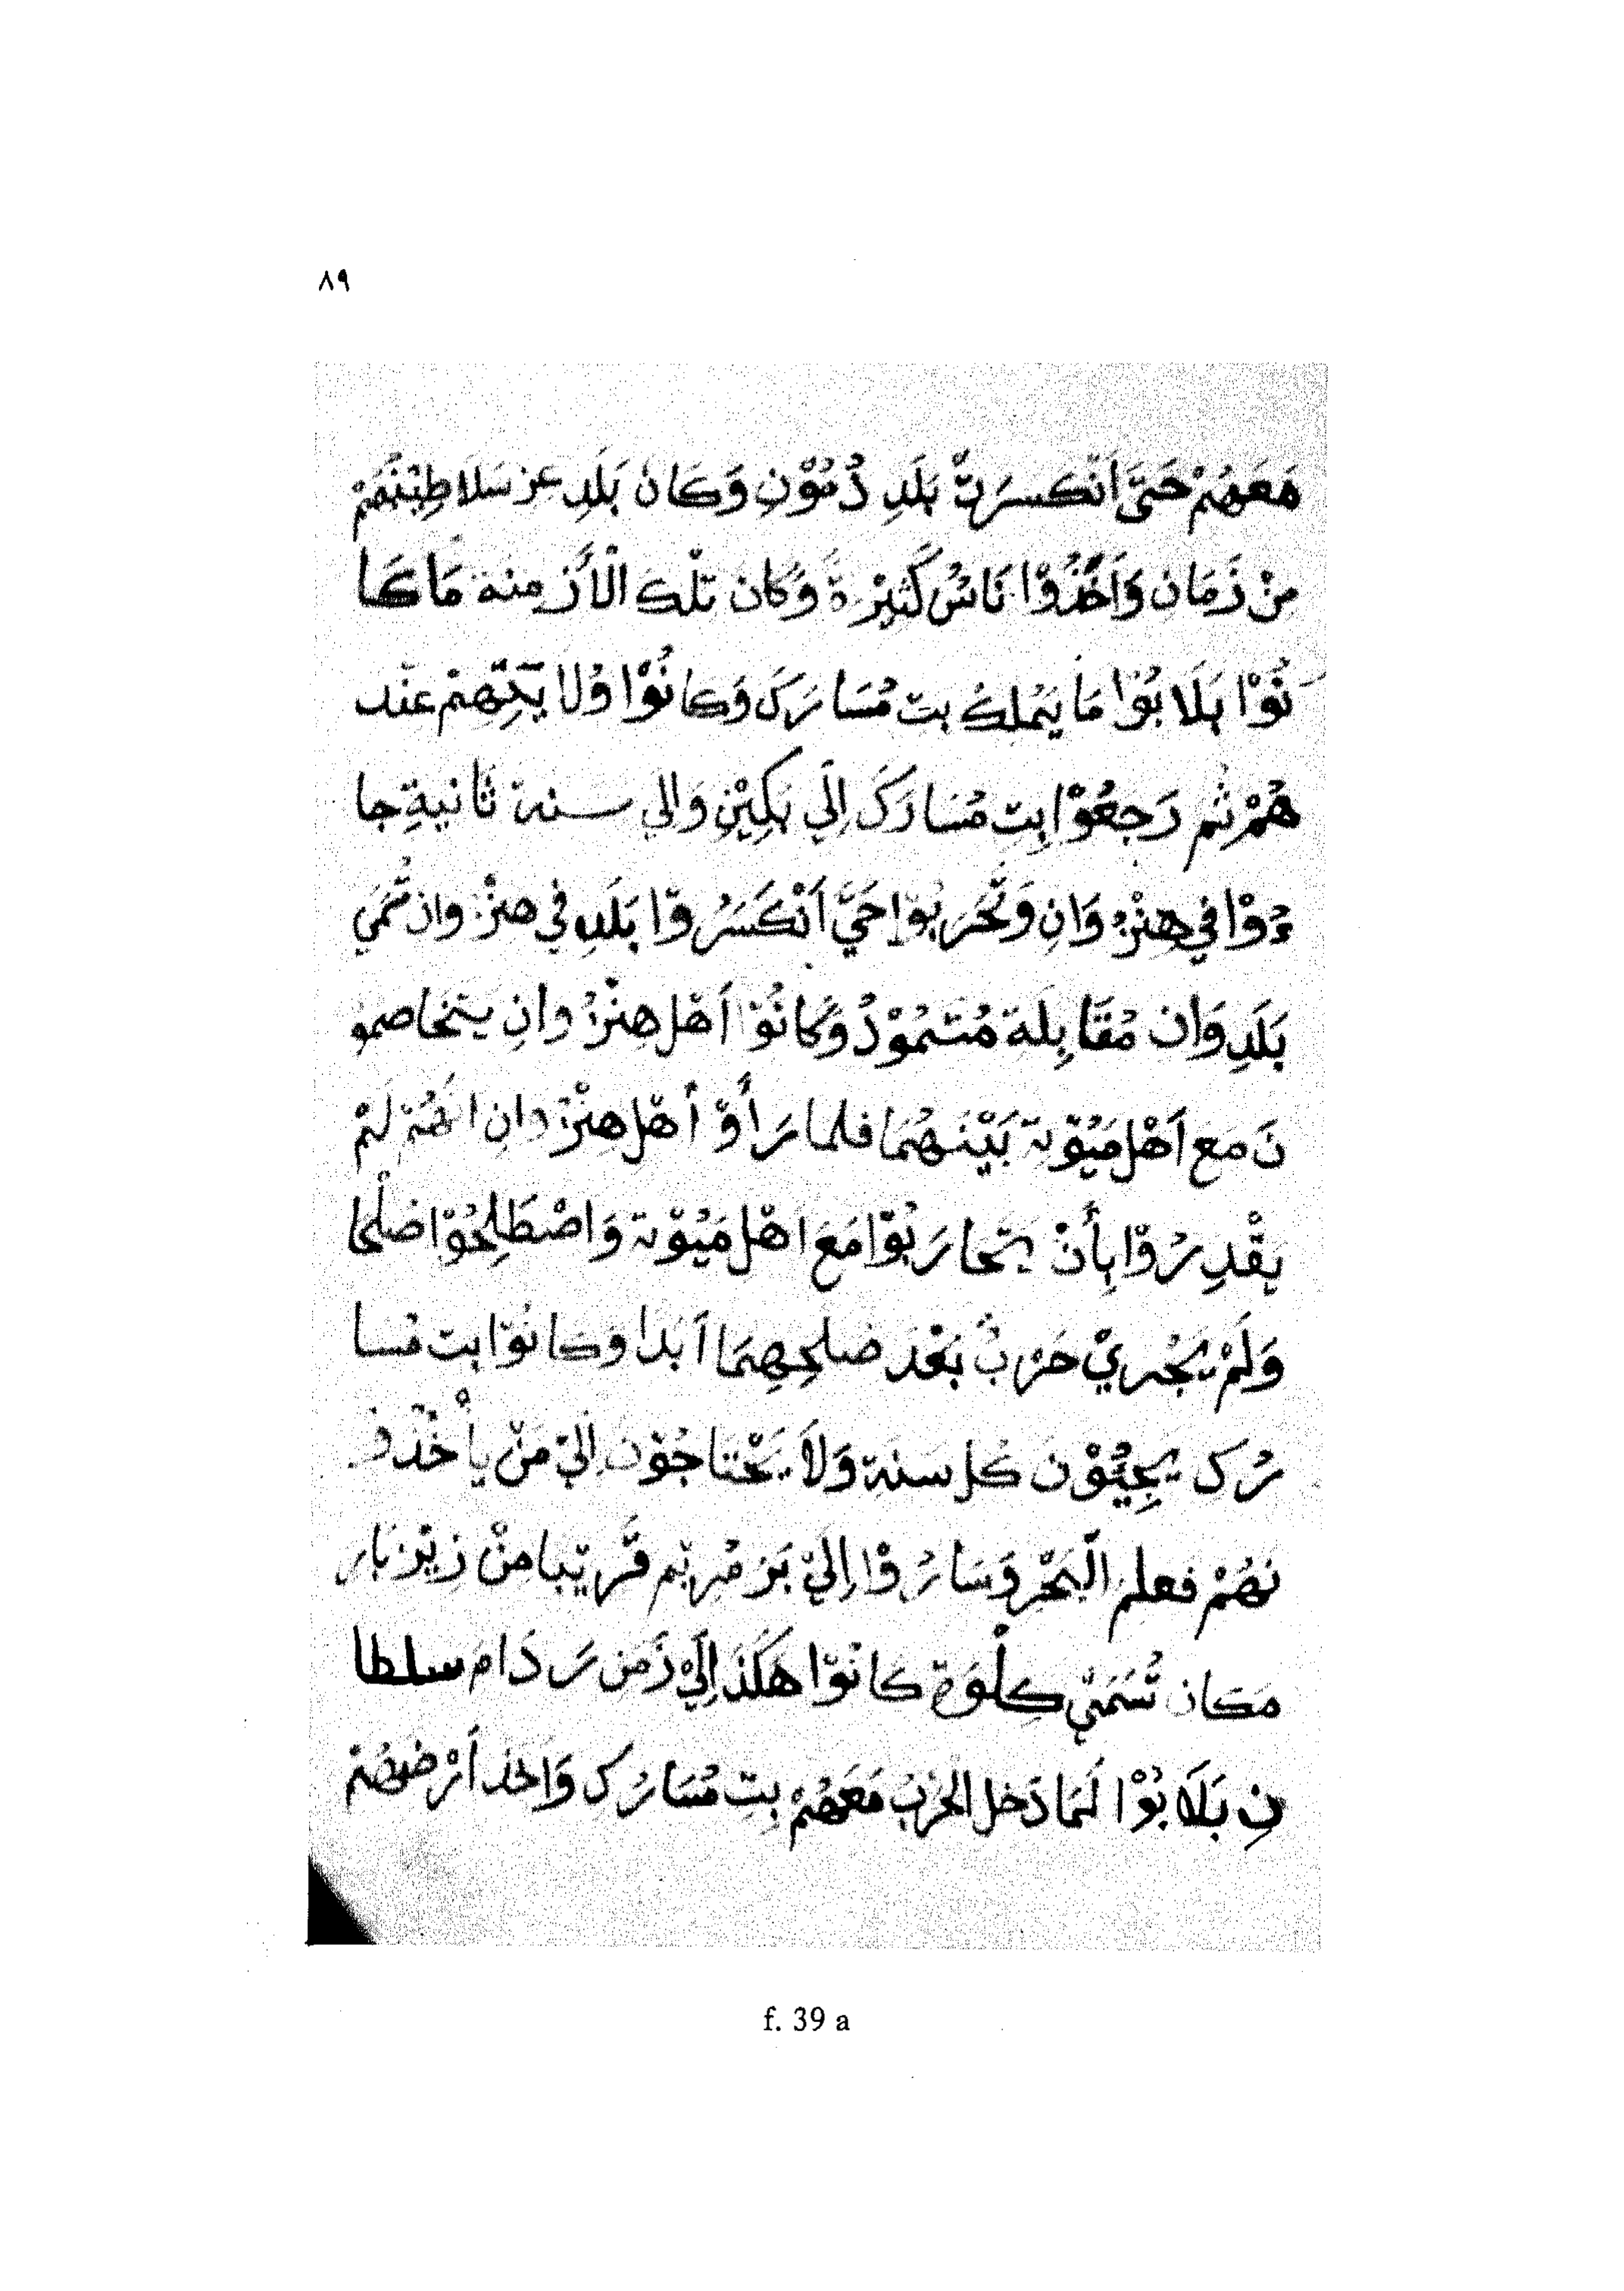 ٨٩
مَعَهُمْ حَتَّىٰ أَنْكَسَرَتْ بَلَدِ دُمُوْنِ وَكَانَ بَلَدِ عز سَلَاطِيْنُهُمْ
مِنْ زَمَانِ وَاَخَذُوْا نَاسُ كَثِيْرَةً وَكَانَ تِلْكَ الْأَزْمِنَة مَاكَا
نُوْا بَلَابُوْا مَا يَمْلِكُ بِت مُسَارَكَ وَكَانُوْا وُلَا يَحِتّهِمْ عِنْد
هُمْ ثُم رَجَعُوْا بِت مُسَارَكَ اِلَي بَكِيْنِ وَاِلي سَنة ثَانِيةِ جا
ءُوْا فِي هِنْزُوَانِ وَتَّحَرَبُوْا حَتَّي أَنْكَسَرُوْا بَلَدِ فِي هنزوان تُسَمَي
بَلَدِ وَانِ مُقَابِلَة مُتسَمُوْدُ وَكَانُوْ أَهْل هِنْزُوانِ يتخاصمو
نَ مَع أَهْل مَيُوْتة بَيْنَهُمَا فلما رَأَوْ أَهْل هِنْزُوانِ انهُمْ لَمْ
يقْدِرُوْا بِأَنْ يتحارَبُوْا مَعَ اهْل مَيُوْتة وَاصْطَلِحُوْا صُلْحا
وَلَمْ يَجْرِيْ حَرْبٌ بَعْدَ صُلحِهِمَا أَبَدا وَكَانُوْا بت مُسا
رُك يَجِيُّوْنَ كُل سَنة وَلَا يَحْتَاجُوْنَ اِليْ مَنْ يأْخُذو
نهُمْ فعلم الْبَحْر وَسَارُوْا اِليْ بَر مُرِيْم قَرِيْبا مِنْ زِيْنْزِبَار
مَكان تُسَمَّيْ كِلْوَة كانُوْا هَكَذَ اِلَيْ زَمن رَدَامَ سلطا
نِ بَلَابُوْا لَمَا دَخل الحَرْبُ مَعَهُمْ بِت مُسَارُك وَاخذ أَرْضهُمْ
f. 39 a